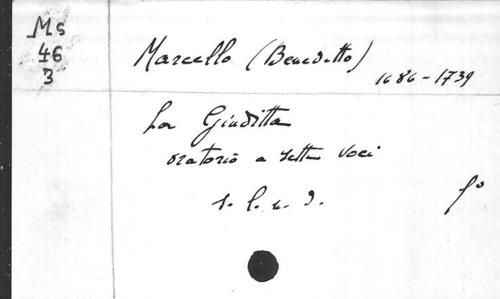 Ms
46
3
Marcello (Benedetto)
1686-1739
La Giuditta
oratorio a sette voci
s. l. n. d.
fº